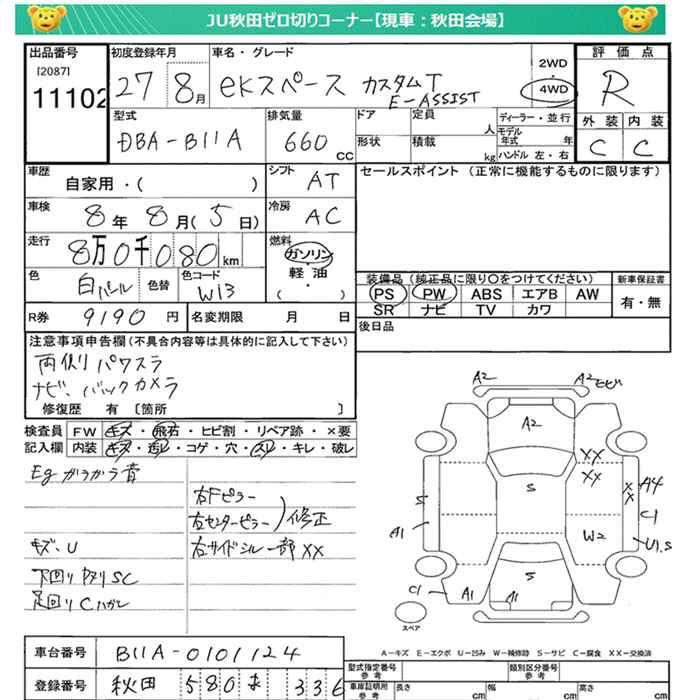 JU秋田ゼロ切りコーナー【現車：秋田会場】
出品番号 初度登録年月 車名・グレード 2WD 評価点
[2087]
11102 27 8月 eKスペース カスタムT E-ASSIST 4WD R
型式 排気量 ドア 定員 人 ディーラー・並行 外装 内装
DBA-B11A 660 CC 形状 積載 kg モデル年式 年 ハンドル 左・右 C C
車歴 自家用・( ) シフト AT セールスポイント（正常に機能するものに限ります）
車検 8年 8月(5日) 冷房 AC
走行 8万0千080 km 燃料 ガソリン・軽油・( )
色 白パール 色替 色コード W13
装備品（純正品に限り○をつけてください） 新車保証書
PS PW ABS エアB AW 有・無
SR ナビ TV カワ
R券 9190 円 名変期限 月 日 後日品
注意事項申告欄（不具合内容等は具体的に記入して下さい）
両側パワスラ
ナビ、バックカメラ
修復歴 有 〔箇所 〕
検査員 FW キズ・飛石・ヒビ割・リペア跡・×要
記入欄 内装 キズ・汚レ・コゲ・穴・スレ・キレ・破レ
Egガラガラ音
右Fピラー
右センターピラー 修正
キズ、U 右サイドシル一部XX
下回りタタリSC
足回りCハガレ
A2 A2ヒビ
A2
XX
S XX XX A4
S C1
A1 W2 U1.S
C1 A1 A1 S
スペア
A-キズ E-エクボ U-凹み W-補修跡 S-サビ C-腐食 XX-交換済
車台番号 B11A-0101124
型式指定番号 参考 類別区分番号 参考
登録番号 秋田 580 ま 336
車庫証明用 参考 長さ cm 幅 cm 高さ cm